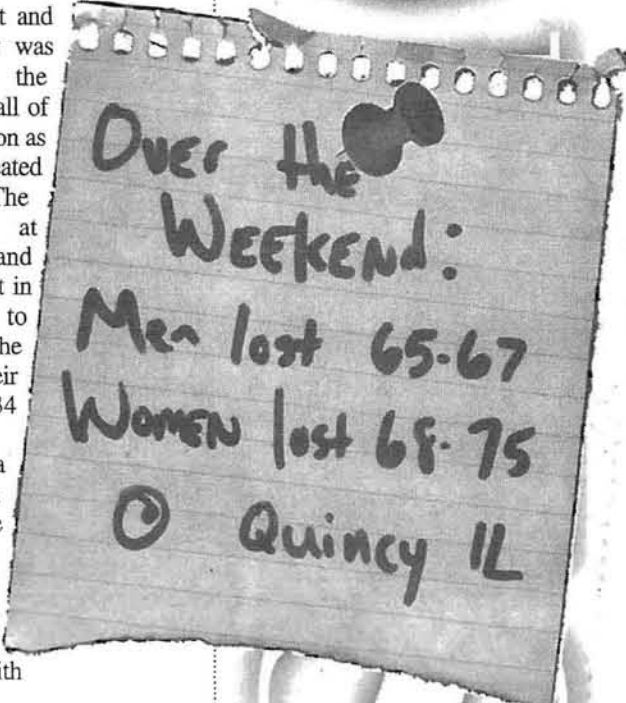 t and
was
the
all of
on as
ated
The
at
and
t in
to
he
eir
34
a
ith
Over the
WEEKEND:
Men lost 65-67
WOMEN lost 68-75
@ Quincy IL